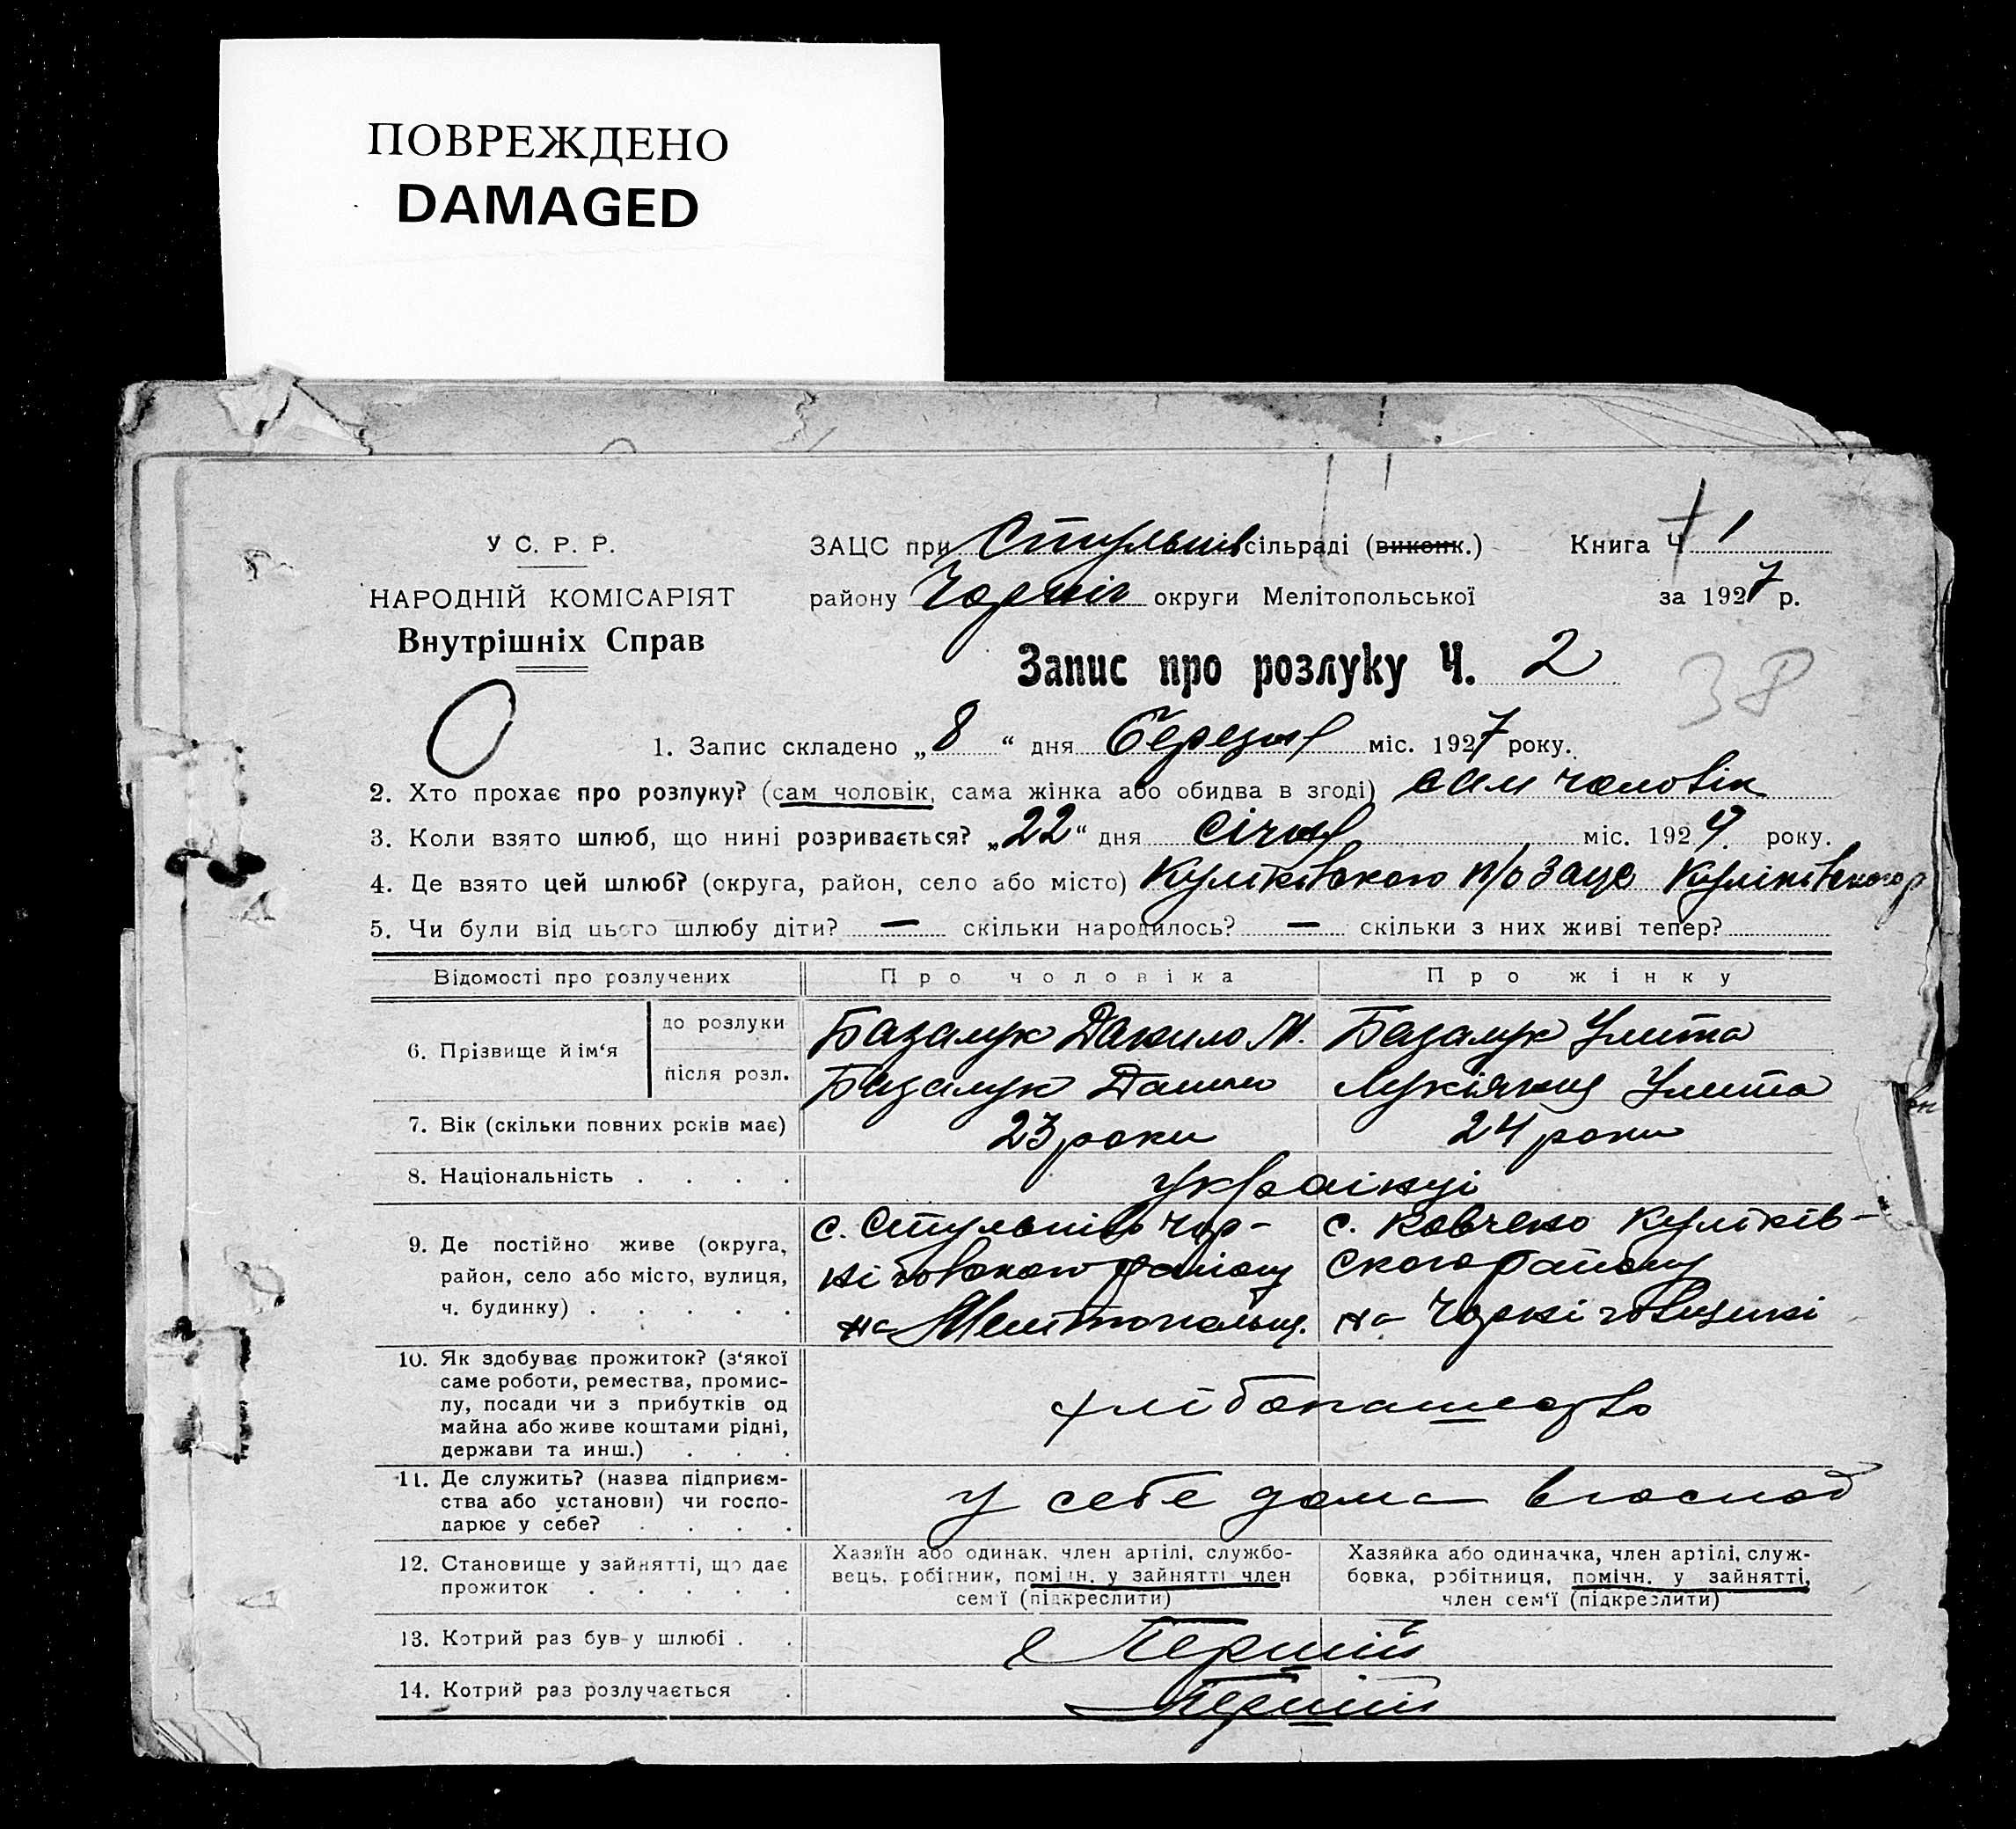 ПОВРЕЖДЕНО
DAMAGED
У С. Р. Р.
НАРОДНІЙ КОМІСАРІЯТ
Внутрішніх Справ
ЗАЦС при Стульнів сільраді (виконк.)
Книга Ч 1
району Черніг округи Мелітопольської
за 1927 р.
Запис про розлуку Ч. 2
38
1. Запис складено „8“ дня Березня міс. 1927 року.
2. Хто прохає про розлуку? (сам чоловік, сама жінка або обидва в згоді) сам чоловік
3. Коли взято шлюб, що нині розривається? „22“ дня Січня міс. 1924. року.
4. Де взято цей шлюб? (округа, район, село або місто) Куліківского Зацс Куліківського р
5. Чи були від цього шлюбу діти? — скільки народилось? — скільки з них живі тепер?
Відомості про розлучених
Про чоловіка
Про жінку
6. Прізвище й ім‘я
до розлуки
Базалук Данило М.
Базалук Улита
після розл.
Базалук Данило
Улита
7. Вік (скільки повних років має)
23 роки
24 роки
8. Національність . . . .
Українці
9. Де постійно живе (округа,
район, село або місто, вулиця,
ч. будинку) . . . . .
с. Стульнів Чер-
ніговского району
на Мелітопольщ.
с. Ковченo Куліків-
ского району
на Чернігівщині
10. Як здобуває прожиток? (з‘якої
саме роботи, ремества, промис-
лу, посади чи з прибутків од
майна або живе коштами рідні,
держави та инш.) . . .
хлібопашество
11. Де служить? (назва підприєм-
ства або установи) чи госпо-
дарює у себе? . . . .
у себе дома в господ
12. Становище у зайнятті, що дає
прожиток . . . . .
Хазяїн або одинак, член артілі, службо-
вець, робітник, помічн. у зайнятті член
сем‘ї (підкреслити)
Хазяйка або одиначка, член артілі, служ-
бовка, робітниця, помічн. у зайнятті,
член сем‘ї (підкреслити)
13. Котрий раз був-у шлюбі . .
Перший
14. Котрий раз розлучається .
Перший